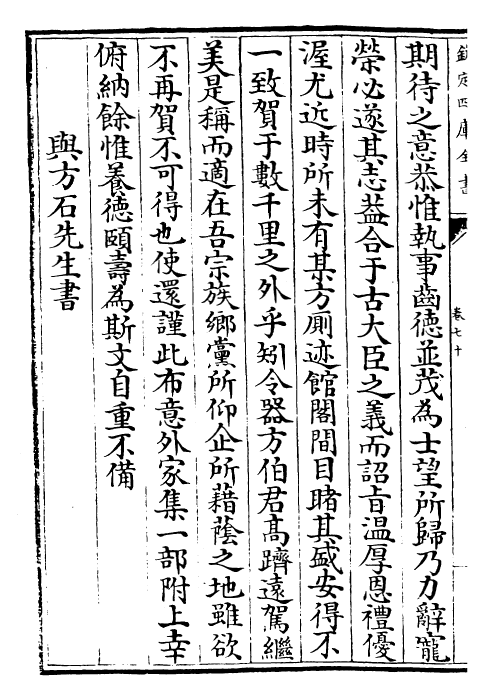 欽定四庫全書
卷七十
期待之意恭惟執事齒德並茂為士望所歸乃力辭寵
榮必遂其志葢合于古大臣之義而詔㫖溫厚恩禮優
渥尤近時所未有某方厠迹館閣間目睹其盛安得不
一致賀于數千里之外乎矧令器方伯君髙躋遠駕繼
美是稱而適在吾宗族鄉黨所仰企所藉蔭之地雖欲
不再賀不可得也使還謹此布意外家集一部附上幸
俯納餘惟養德頤壽為斯文自重不備
與方石先生書